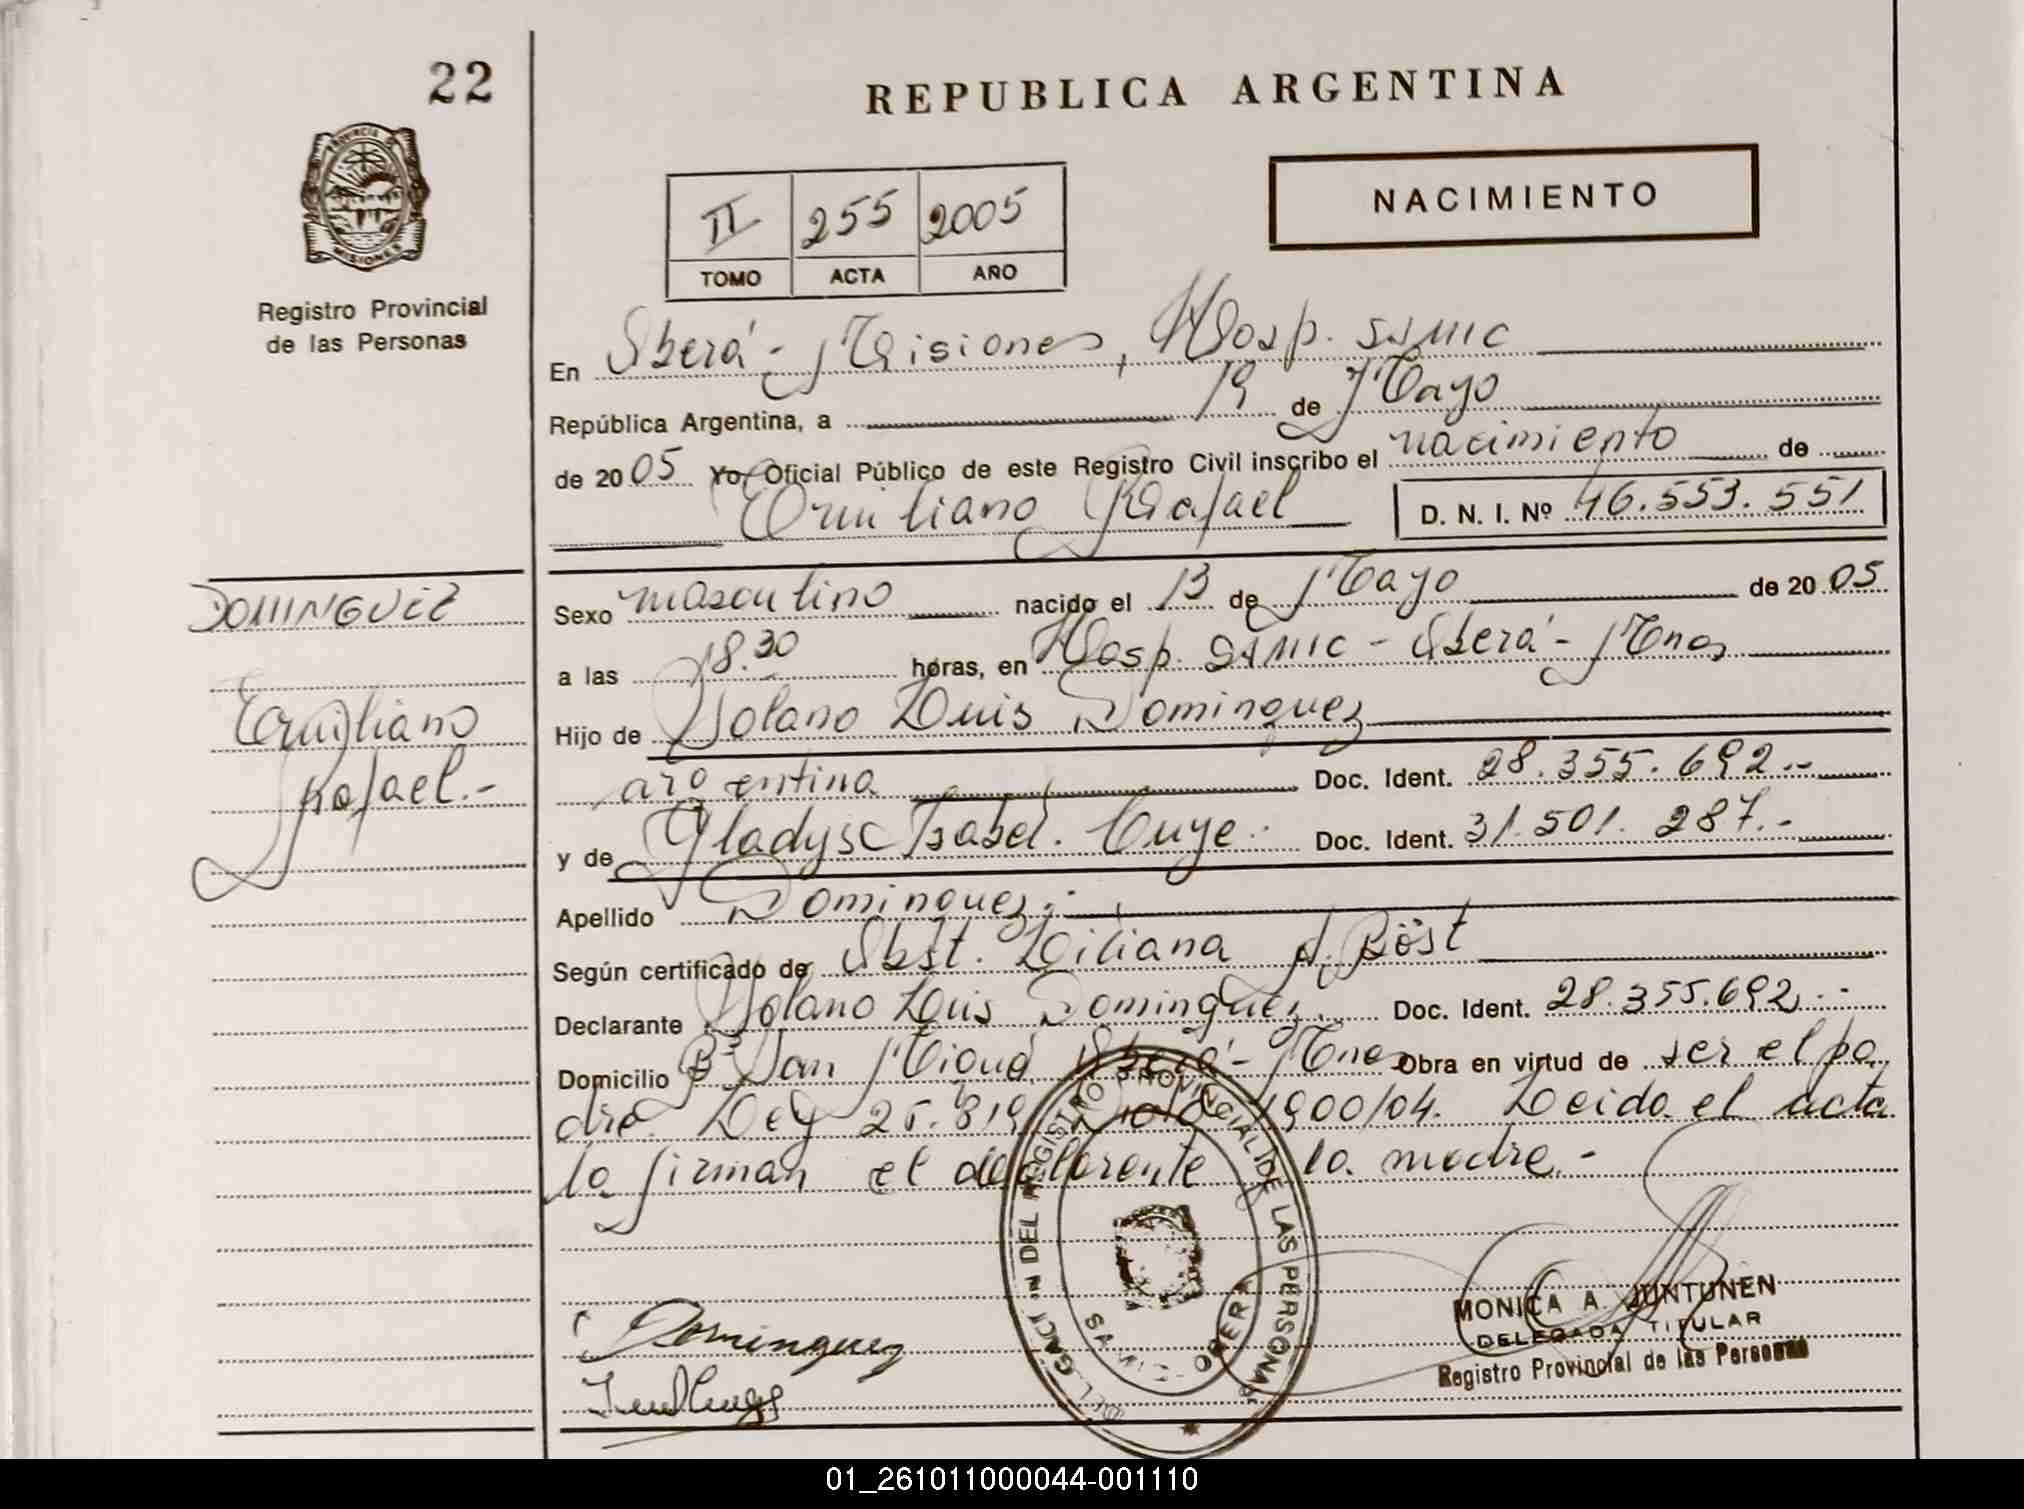 22
REPUBLICA ARGENTINA
PROVINCIA DE
MISIONES
Registro Provincial
de las Personas
II 255 2005
TOMO ACTA AÑO
NACIMIENTO
En Oberá - Misiones, Hosp. SAMIC
República Argentina, a 19 de Mayo
de 2005 Yo, Oficial Público de este Registro Civil inscribo el nacimiento de
Emiliano Rafael D. N. I. Nº 46.553.551
DOMINGUEZ
Emiliano
Rafael.-
Sexo masculino nacido el 13 de Mayo de 2005
a las 18.30 horas, en Hosp. SAMIC - Oberá - Mnes
Hijo de Solano Luis Dominguez
argentina Doc. Ident. 28.355.692.-
y de Gladys Isabel Doc. Ident. 31.501.287.-
Apellido Dominguez.-
Según certificado de Obst. Liliana A. Böst
Declarante Solano Luis Dominguez Doc. Ident. 28.355.692.-
Domicilio Bº San Miguel Oberá - Mnes Obra en virtud de ser el pa
dre. Ley 25.819 1900/04. Leida el acta
la firman el declarante la madre.-
DEL REGISTRO PROVINCIAL DE LAS PERSONAS
OBERA
Dominguez
MONICA A. JUNTUNEN
DELEGADA TITULAR
Registro Provincial de las Personas
01_261011000044-001110